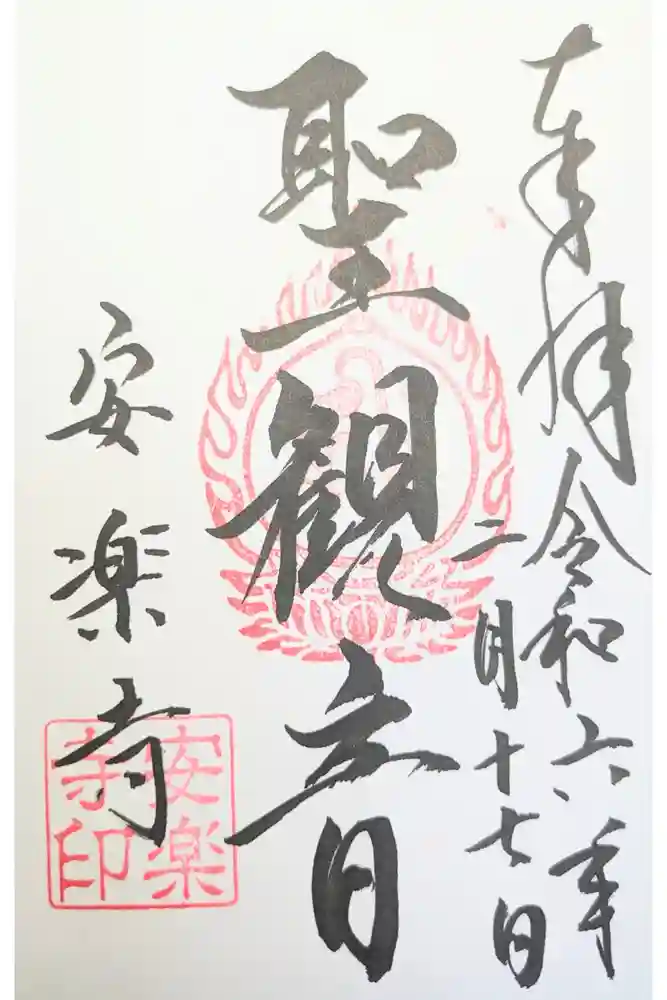 奉拝 令和六年
二月十七日
聖観音
安楽寺
安楽
寺印